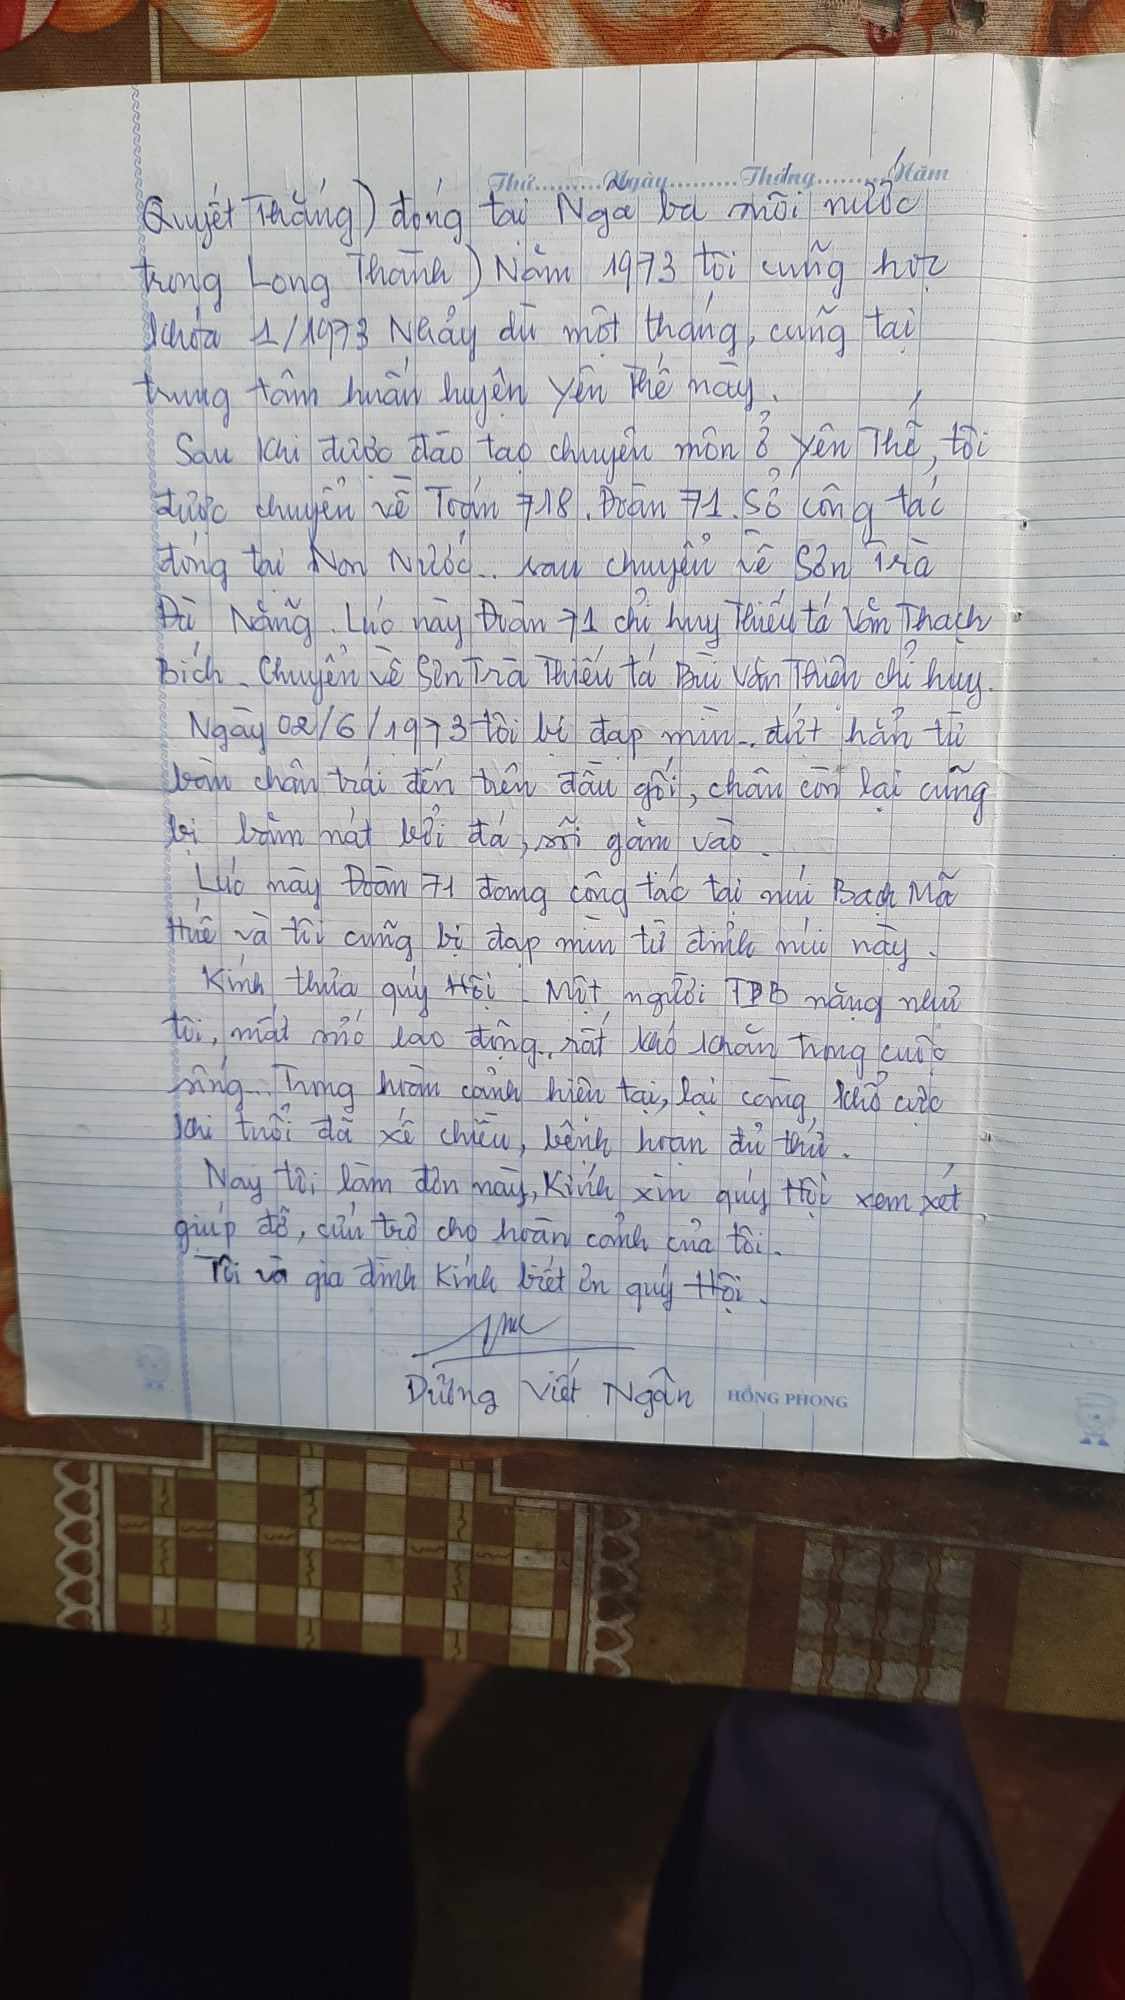 Thứ.........Ngày.........Tháng.........Năm
Quyết Thắng) đóng tại Ngã ba mỗi nước
trong Long Thành) Năm 1973 tôi cũng học
khóa 1/1973 Nhảy dù một tháng, cũng tại
trung tâm huấn huyện Yên Thế này.
Sau khi được đào tạo chuyên môn ở Yên Thế, tôi
được chuyển về Toán 718. Đoàn 71. Sở công tác
đóng tại Non Nước.. sau chuyển về Sơn Trà
Đà Nẵng. Lúc này Đoàn 71 chỉ huy Thiếu tá Văn Thạch
Bích. Chuyển về Sơn Trà Thiếu tá Bùi Văn Thiện chỉ huy.
Ngày 02/6/1973 tôi bị đạp mìn.. đứt hẳn từ
bàn chân trái đến trên đầu gối, chân còn lại cũng
bị bầm nát bởi đá, sỏi găm vào.
Lúc này Đoàn 71 đang công tác tại núi Bạch Mã
Huế và tôi cũng bị đạp mìn từ đỉnh núi này.
Kính thưa quý Hội. Một người TPB nặng như
tôi, mất sức lao động.. rất khó khăn trong cuộc
sống... Trong hoàn cảnh hiện tại, lại càng khổ cực
khi tuổi đã xế chiều, bệnh hoạn đủ thứ.
Nay tôi làm đơn này, Kính xin quý Hội xem xét
giúp đỡ, cứu trợ cho hoàn cảnh của tôi.
Tôi và gia đình Kính biết ơn quý Hội.
Dương Viết Ngân
HỒNG PHONG